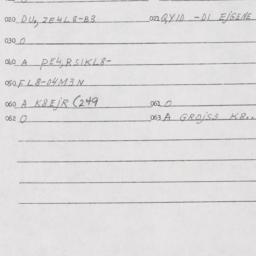 020 DU, 2E4L8-B3 021 QYID -D1 EJSENE
030 0
040 A PE4,RSIKL8-
050 FL8-04M3N
060 A K8EJR (249 061 0
062 0 063 A GROJSS K8..